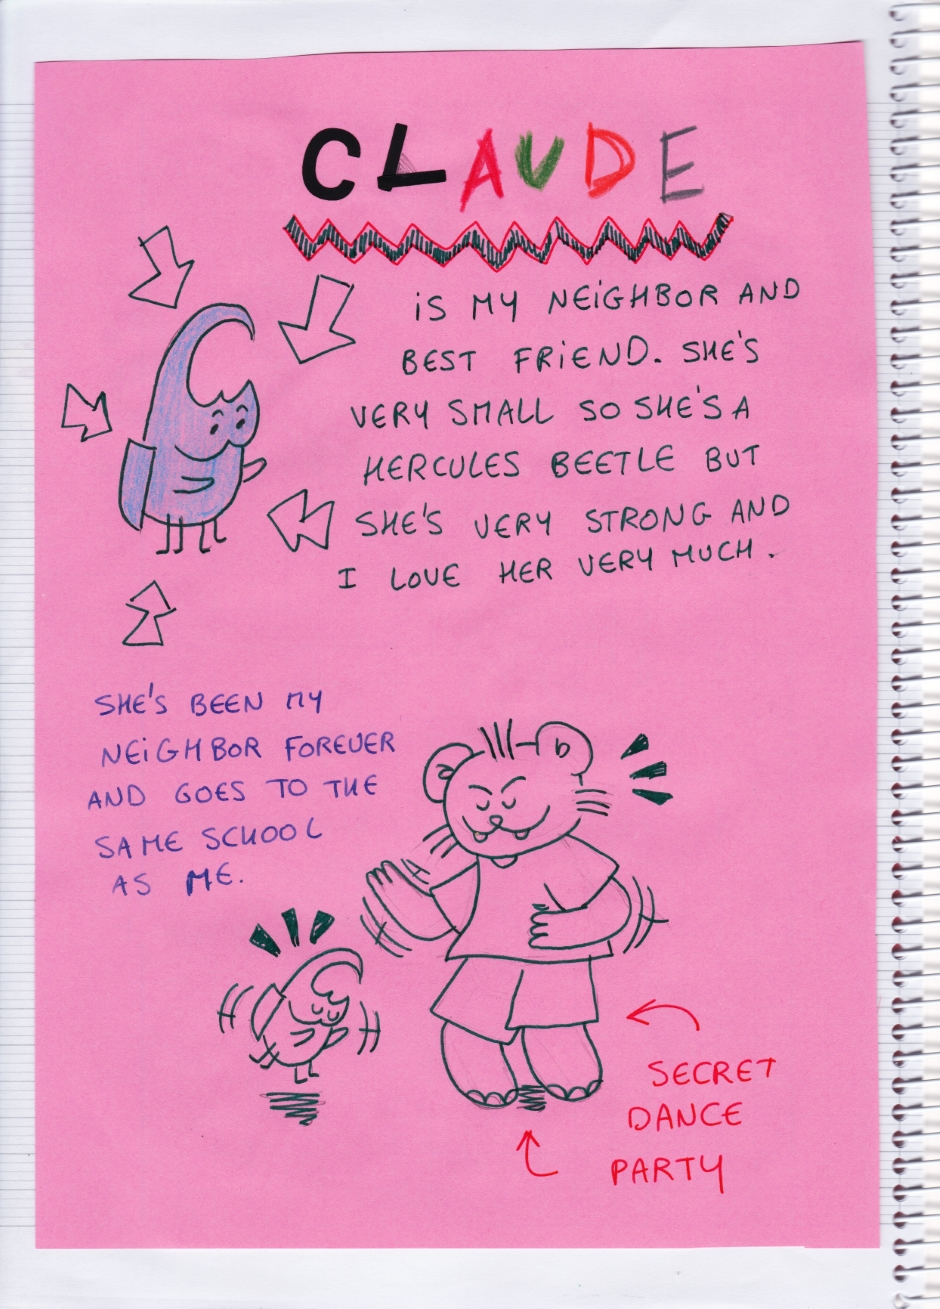 CLAUDE
iS MY NEiGHBOR AND
BEST FRiEND. SHE'S
VERY SMALL SO SHE'S A
HERCULES BEETLE BUT
SHE'S VERY STRONG AND
I LOVE HER VERY MUCH.
SHE'S BEEN MY
NEiGHBOR FOREVER
AND GOES TO THE
SAME SCHOOL
AS ME.
SECRET
DANCE
PARTY